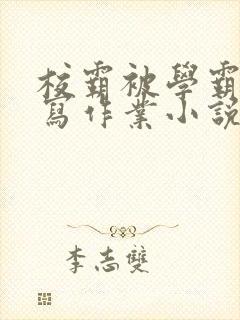 校霸被學霸
寫作業小說
李志雙